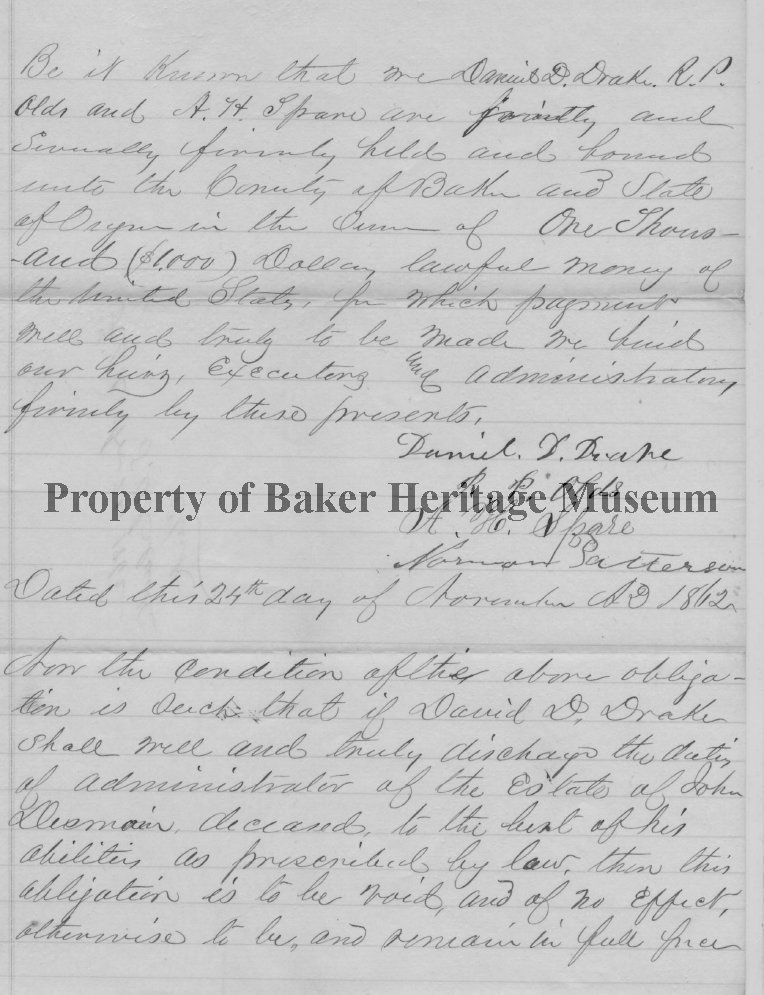 Be it Known that we Daniel D. Drake. R. P.
Olds and A. H. Spare are jointly and
Severally firmly held and bound
unto the County of Baker and State
of Oregon in the Sum of One Thous-
-and ($1.000) Dollars, lawful money of
the United States, for which payment
well and truly to be made we bind
our heirs, Executors and administrators,
firmly by these presents.
Daniel. D. Drake
R. P. Olds
Property of Baker Heritage Museum
A. H. Spare
Norman Patterson
Dated this 24th day of November AD 1862
Now the condition of the above obliga-
tion is Such that if David D. Drake
Shall well and truly discharge the duties
of administrator of the Estate of John
deceased, to the best of his
abilities as prescribed by law. then this
obligation is to be void, and of no Effect,
otherwise to be, and remain in full force